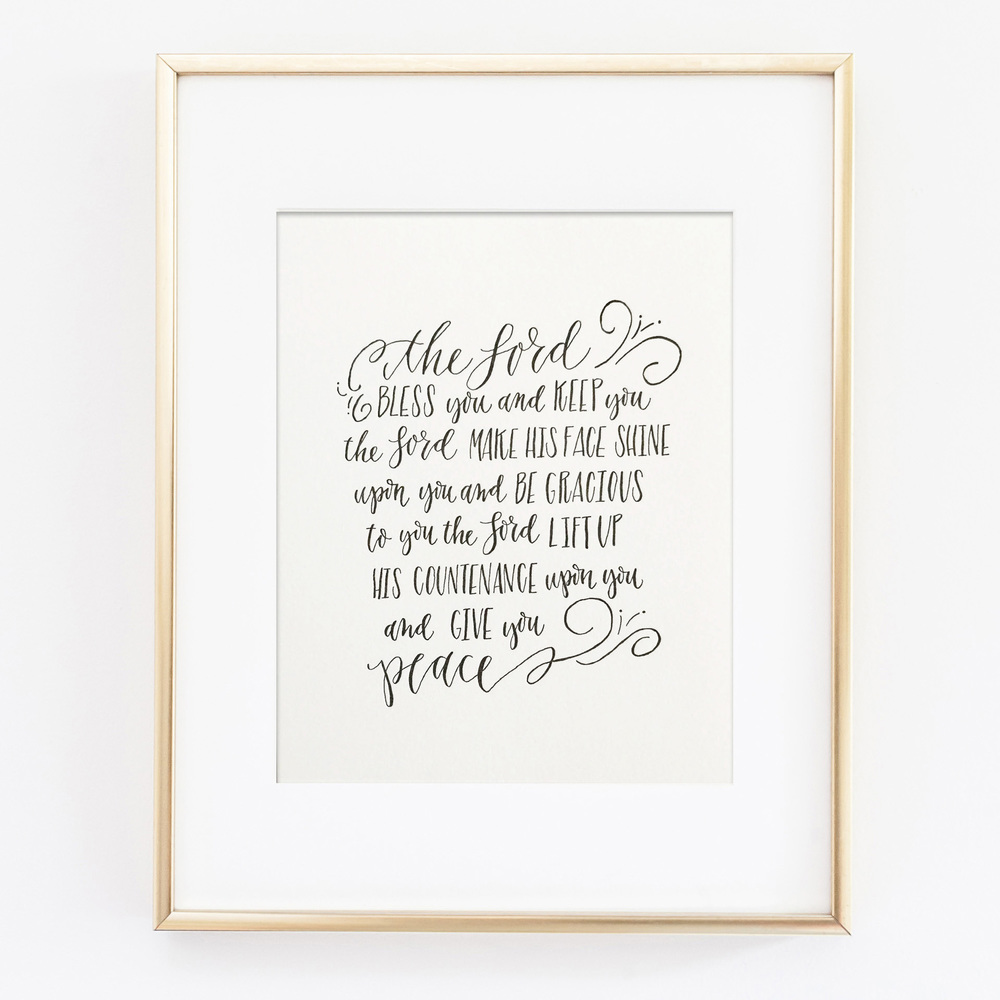 the Lord
BLESS you and KEEP you
the Lord MAKE HIS FACE SHINE
upon you and BE GRACIOUS
to you the Lord LIFT UP
HIS COUNTENANCE upon you
and GIVE you
peace